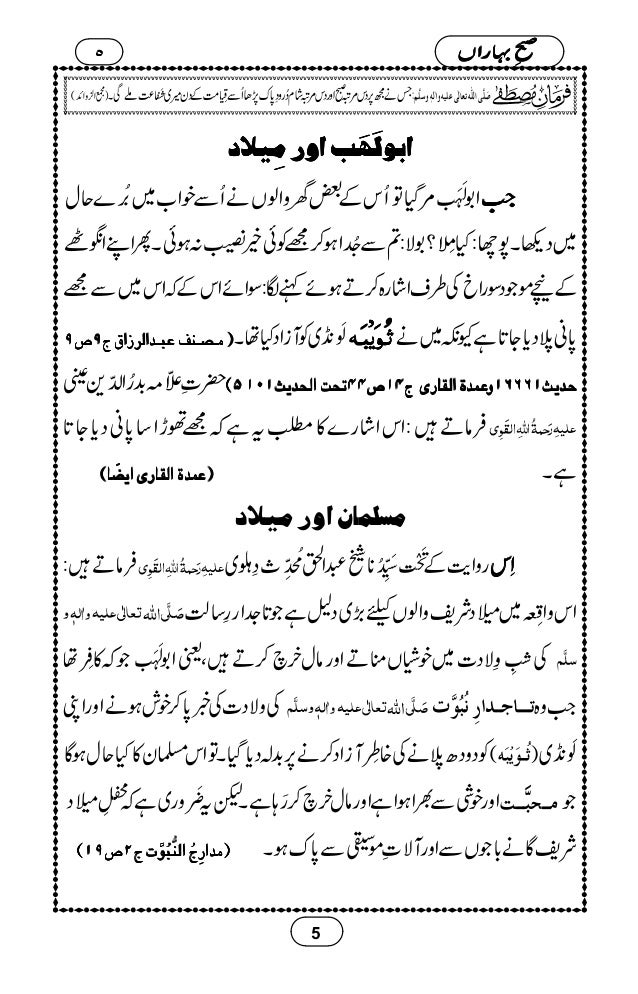 صبح بہاراں
۵
فرمانِ مُصطَفٰے صلَّی اللہ تعالیٰ علیہ والہٖ وسلَّم: جس نے مجھ پر دس مرتبہ صبح اور دس مرتبہ شام دُرودِ پاک پڑھا اُسے قیامت کے دن میری شفاعت ملے گی۔ (مجمع الزوائد)
ابولَہَب اور مِیلاد
جب ابولَہَب مر گیا تو اُس کے بعض گھر والوں نے اُسے خواب میں بُرے حال
میں دیکھا۔ پوچھا: کیا مِلا؟ بولا: تم سے جُدا ہو کر مجھے کوئی خیر نصیب نہ ہوئی۔ پھر اپنے انگوٹھے
کے نیچے موجود سوراخ کی طرف اشارہ کرتے ہوئے کہنے لگا: سوائے اس کے کہ اس میں سے مجھے
پانی پلا دیا جاتا ہے کیونکہ میں نے ثُوَیْبَہ لَونڈی کو آزاد کیا تھا۔ (مصنف عبدالرزاق ج۹ص۹
حدیث۱۶۶۶۱ وعمدۃ القاری ج۱۴ص۴۴تحت الحدیث۵۱۰۱) حضرتِ علّامہ بدرُ الدّین عینی
علیہ رَحمۃُ اللہِ القَوِی فرماتے ہیں: اس اشارے کا مطلب یہ ہے کہ مجھے تھوڑا سا پانی دیا جاتا
ہے۔ (عمدۃ القاری ایضًا)
مسلمان اور میلاد
اِس روایت کے تَحْت سَیِّدُنا شیخ عبدالحق مُحَدِّث دِہلوی علیہ رَحمۃُ اللہِ القَوِی فرماتے ہیں:
اس واقِعہ میں میلاد شریف والوں کیلئے بڑی دلیل ہے جو تاجدارِ رِسالت صَلَّی اللہ تعالیٰ علیہ والہٖ و
سلَّم کی شبِ وِلادت میں خوشیاں مناتے اور مال خرچ کرتے ہیں، یعنی ابولَہَب جو کہ کافِر تھا
جب وہ تاجدارِ نُبُوَّت صَلَّی اللہ تعالیٰ علیہ والہٖ وسلَّم کی ولادت کی خبر پا کر خوش ہونے اور اپنی
لَونڈی (ثُوَیْبَہ) کو دودھ پلانے کی خاطِر آزاد کرنے پر بدلہ دیا گیا۔ تو اس مسلمان کا کیا حال ہوگا
جو محبَّت اور خوشی سے بھرا ہوا ہے اور مال خرچ کر رہا ہے۔ لیکن یہ ضَروری ہے کہ محفلِ میلاد
شریف گانے باجوں سے اور آلاتِ موسیقی سے پاک ہو۔ (مدارِجُ النُّبُوَّت ج۲ص۱۹)
5